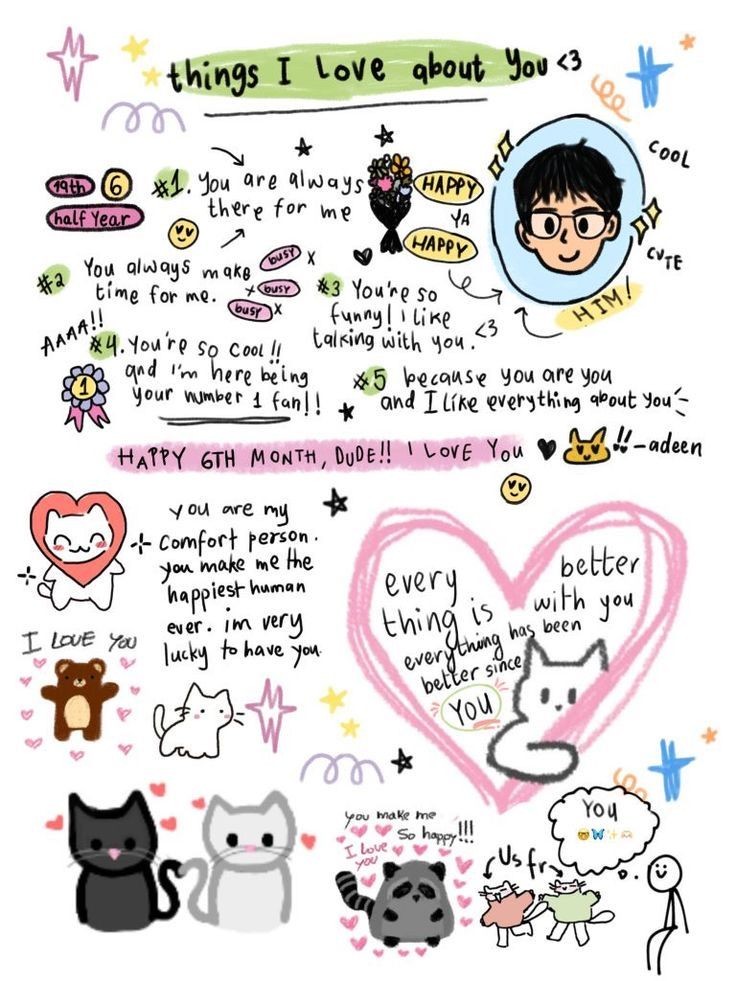 things I Love about You <3
19th 6
half Year
#1. You are always
there for me
HAPPY
YA
HAPPY
COOL
CUTE
HIM!
#2 You always make
time for me.
busy x
x busy
busy x
#3 You're so
funny! I like
talking with you. <3
AAAA!!
#4. You're so cool!!
and I'm here being
your number 1 fan!!
1
#5 because you are you
and I like everything about you
HAPPY 6TH MONTH, DUDE!! I LOVE YOU !! -adeen
you are my
comfort person.
you make me the
happiest human
ever. im very
lucky to have you.
I LOVE YOU
every
thing is
better
with you
everything has been
better since
YOU
you make me
So happy!!!
I love
you
Us fr
You